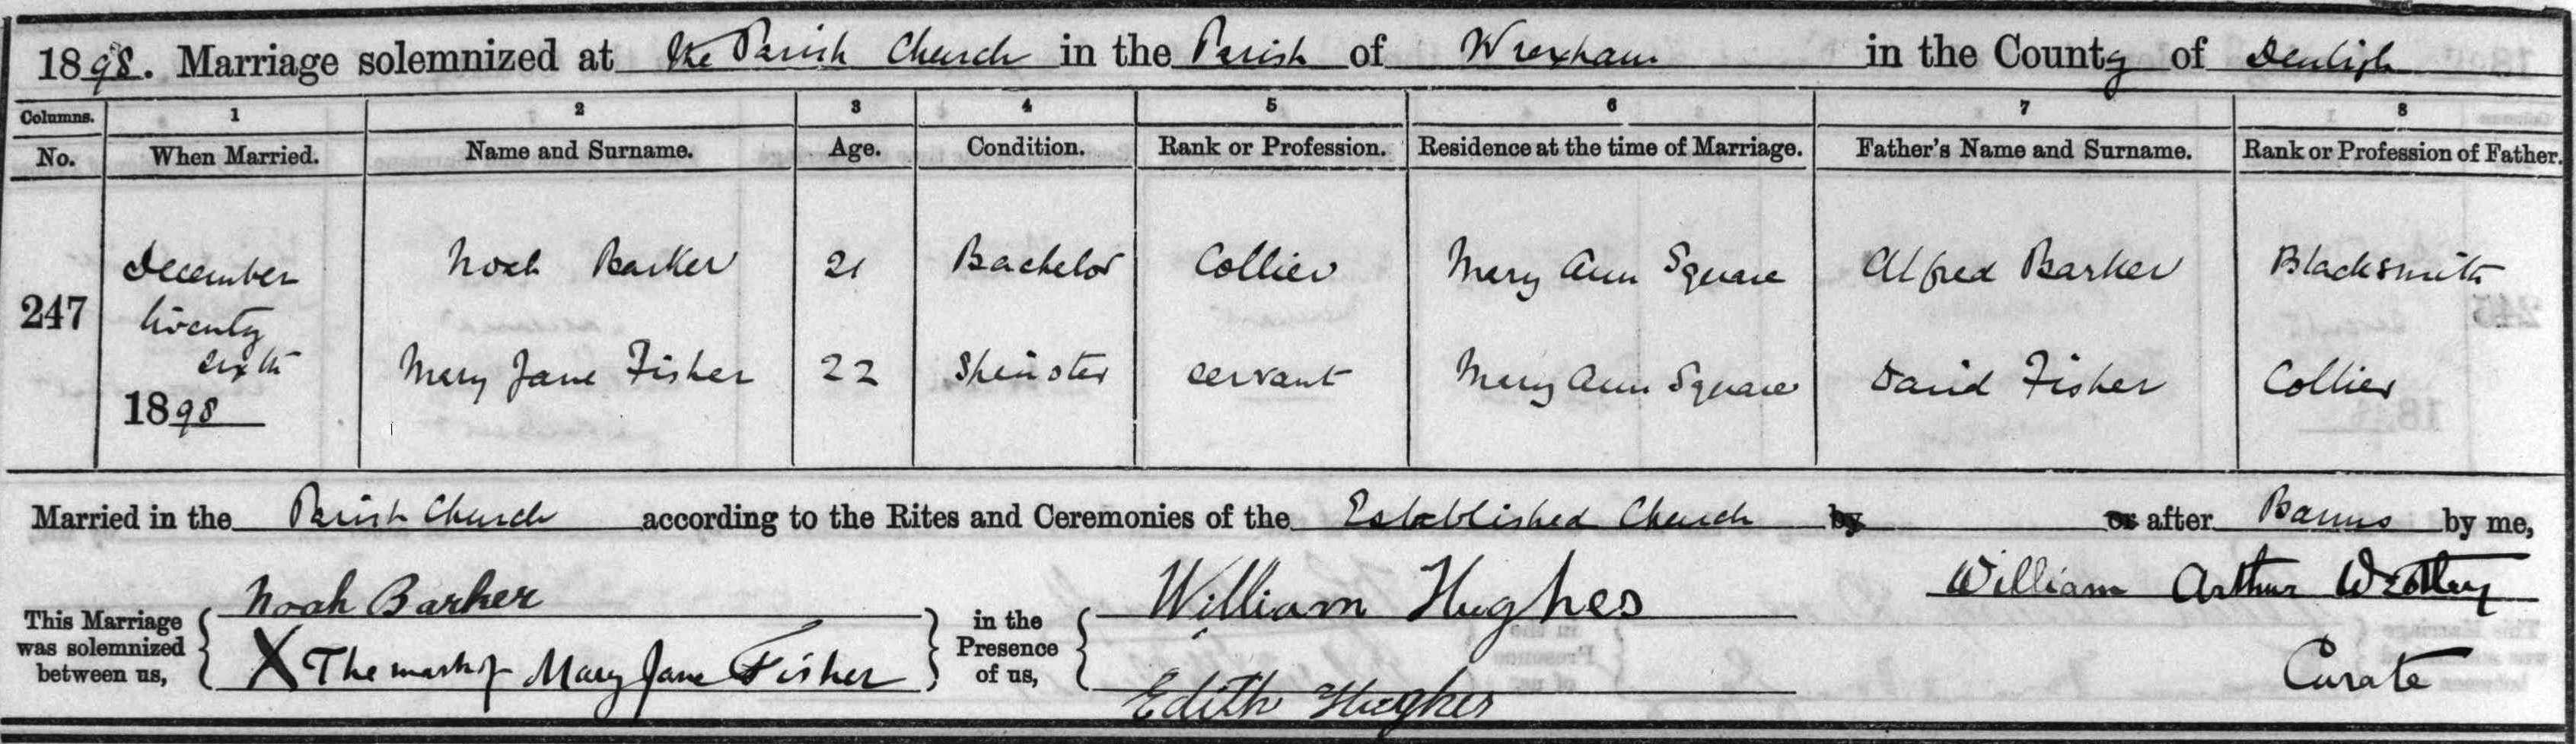 1898. Marriage solemnized at the Parish Church in the Parish of Wrexham in the County of Denbigh
Columns. 1 2 3 4 5 6 7 8
No. When Married. Name and Surname. Age. Condition. Rank or Profession. Residence at the time of Marriage. Father's Name and Surname. Rank or Profession of Father.
247 December twenty sixth 1898
Noah Barker 21 Bachelor Collier Mary Ann Square Alfred Barker Blacksmith
Mary Jane Fisher 22 Spinster servant Mary Ann Square David Fisher Collier
Married in the Parish Church according to the Rites and Ceremonies of the Established Church by or after Banns by me,
This Marriage was solemnized between us, Noah Barker in the Presence of us, William Hughes William Arthur
X The mark of Mary Jane Fisher Edith Hughes Curate